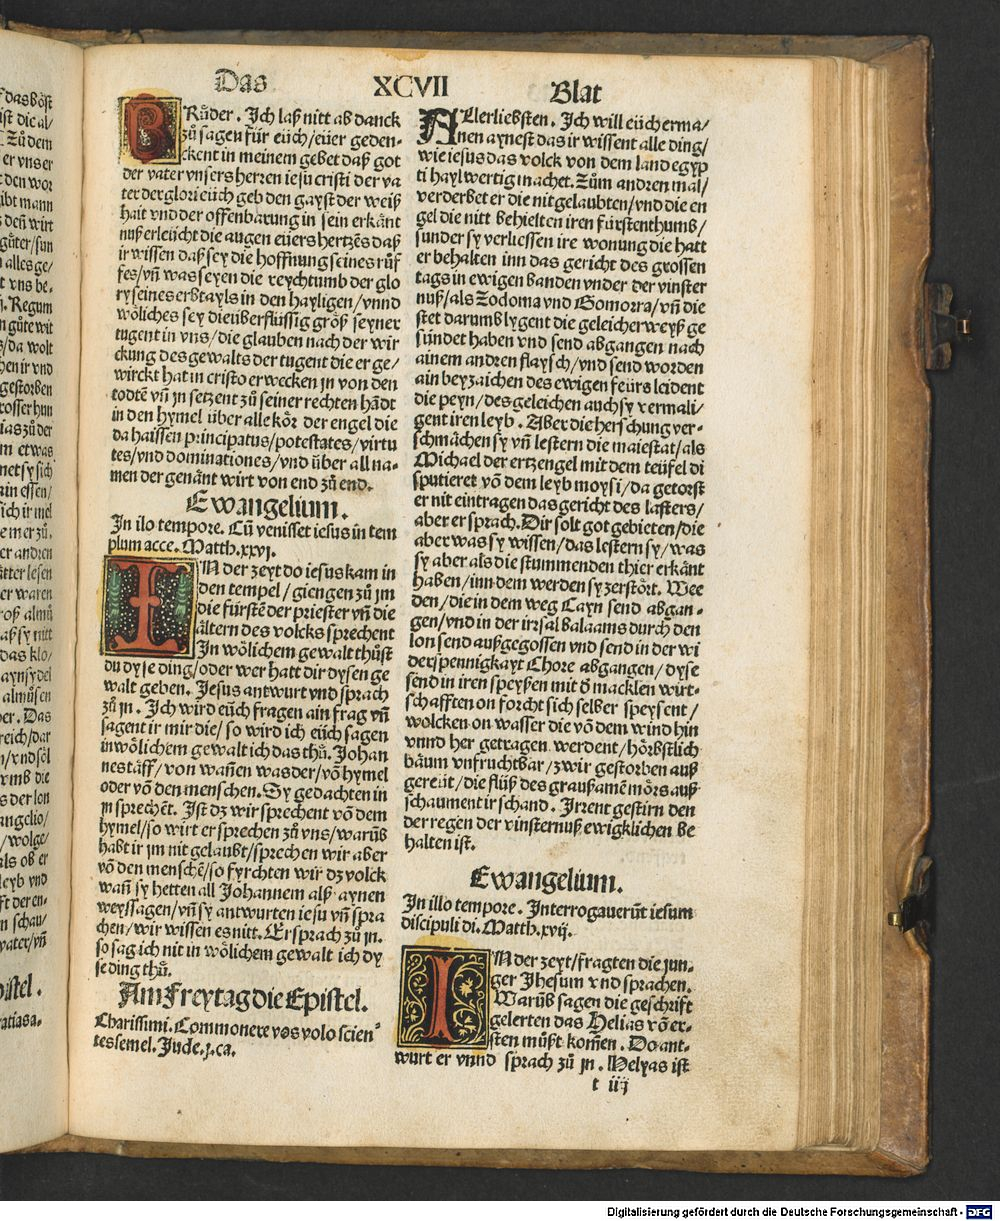 f das böst
ist die al/
Zů dem
er vns er
t den wor
ibt mann
z deñ wirt
gůter/sun
n alles ge/
t vns be-
j. Regum
n gůte wit
z/da wolt
hen ir vnd
gestorben
rosser hun
ias zů der
m etwas
net sy sich
ain essen/
sich ir mel
e mer zů.
er andren
åtter lesen
er waren
roß almů
aß sy nitt
das klo/
aynsydel
almůsen
er. Das
reich/dar
n/vnd söl
rmb die
s der lon
angelio/
/wolge/
als ob er
leyb vnd
ft der en-
n schau/
vater/vñ
pistel.
ratias a.
Das XCVII Blat
BRůder. Ich laß nitt ab danck
zů sagen für eüch/eüer geden-
ckent in meinem gebet daß got
der vater vnsers herren iesu cristi der va
ter der glori eüch geb den gayst der weiß
hait vnd der offenbarung in sein erkånt
nuß erleücht die augen eüers hertzēs daß
ir wissen daß sey die hoffnung seines růf
fes/vñ was seyen die reychtumb der glo
ry seines erbtayls in den hayligen/vnnd
wöliches sey die überflüssig größ seyner
tugent in vns/die glauben nach der wir
ckung des gewalts der tugent die er ge/
wirckt hat in cristo erwecken jn von den
todtē vñ jn setzent zů seiner rechten hãdt
in den hymel über alle kör der engel die
da haissen principatus/potestates/virtu
tes/vnd dominationes/vnd über all na-
men der genånt wirt von end zů end.
Ewangelium.
In ilo tempore. Cũ venisset iesus in tem
plum acce. Matth.xxvj.
IN der zeyt do iesus kam in
den tempel/giengen zů jm
die fürstē der priester vñ die
åltern des volcks sprechent
In wölichem gewalt thůst
du dyse ding/oder wer hatt dir dysen ge
walt geben. Jesus antwurt vnd sprach
zů jn. Ich wird eüch fragen ain frag vñ
sagent ir mir die/so wird ich eüch sagen
in wölichem gewalt ich das thů. Johan
nes tåff/von wañen was der/võ hymel
oder võ den menschen. Sy gedachten in
jn sprechēt. Ist dz wir sprechent võ dem
hymel/so wirt er sprechen zů vns/warũb
habt ir jm nit gelaubt/sprechen wir aber
võ den menschē/so fyrchten wir dz volck
wañ sy hetten all Johannem alß aynen
weyssagen/vñ sy antwurten iesu vñ spra
chen/wir wissen es nitt. Er sprach zů jn.
so sag ich nit in wölichem gewalt ich dy
se ding thů.
Am Freytag die Epistel.
Charissimi. Commonere vos volo scien
tes semel. Jude.j.ca.
ALlerliebsten. Ich will eüch erma/
nen aynest das ir wissent alle ding/
wie iesus das volck von dem land egyp
ti haylwertig machet. Zům andren mal/
verderbet er die nit gelaubten/vnd die en
gel die nitt behielten iren fürstenthumb/
sunder sy verliessen ire wonung die hatt
er behalten inn das gericht des grossen
tags in ewigen banden vnder der vinster
nuß/als Zodoma vnd Gomorra/vñ die
stet darumb lygent die geleicher weyß ge
sündet haben vnd send abgangen nach
ainem andren flaysch/vnd send worden
ain beyzaichen des ewigen feürs leident
die peyn/des geleichen auch sy vermali/
gent iren leyb. Aber die herschung ver-
schmåchen sy vñ lestern die maiestat/als
Michael der ertzengel mit dem teüfel di
sputieret võ dem leyb moysi/da getorst
er nit eintragen das gericht des lasters/
aber er sprach. Dir solt got gebieten/die
aber was sy wissen/das lestern sy/was
sy aber als die stummenden thier erkånt
haben/inn dem werden sy zerstört. Wee
den/die in dem weg Cayn send abgan-
gen/vnd in der irrsal balaams durch den
lon send außgegossen vnd send in der wi
derspennigkayt Chore abgangen/dyse
send in iren speyßen mit d̄ macklen wirt-
schafften on forcht sich selber speysent/
wolcken on wasser die võ dem wind hin
vnnd her getragen werdent/hörbstlich
båum vnfruchtbar/zwir gestorben auß
gereüt/die flüß des graußamē mörs auß
schaument ir schand. Irrent gestirn den
der regen der vinsternuß ewigklichen be
halten ist.
Ewangelium.
In illo tempore. Interrogauerũt iesum
discipuli di. Matth.xvij.
IN der zeyt/fragten die jun-
ger Jhesum vnd sprachen.
Warũb sagen die geschrift
gelerten das Helias võ er-
sten můßt kom̃en. Do ant-
wurt er vnnd sprach zů jn. Helyas ist
t iij
Digitalisierung gefördert durch die Deutsche Forschungsgemeinschaft - DFG